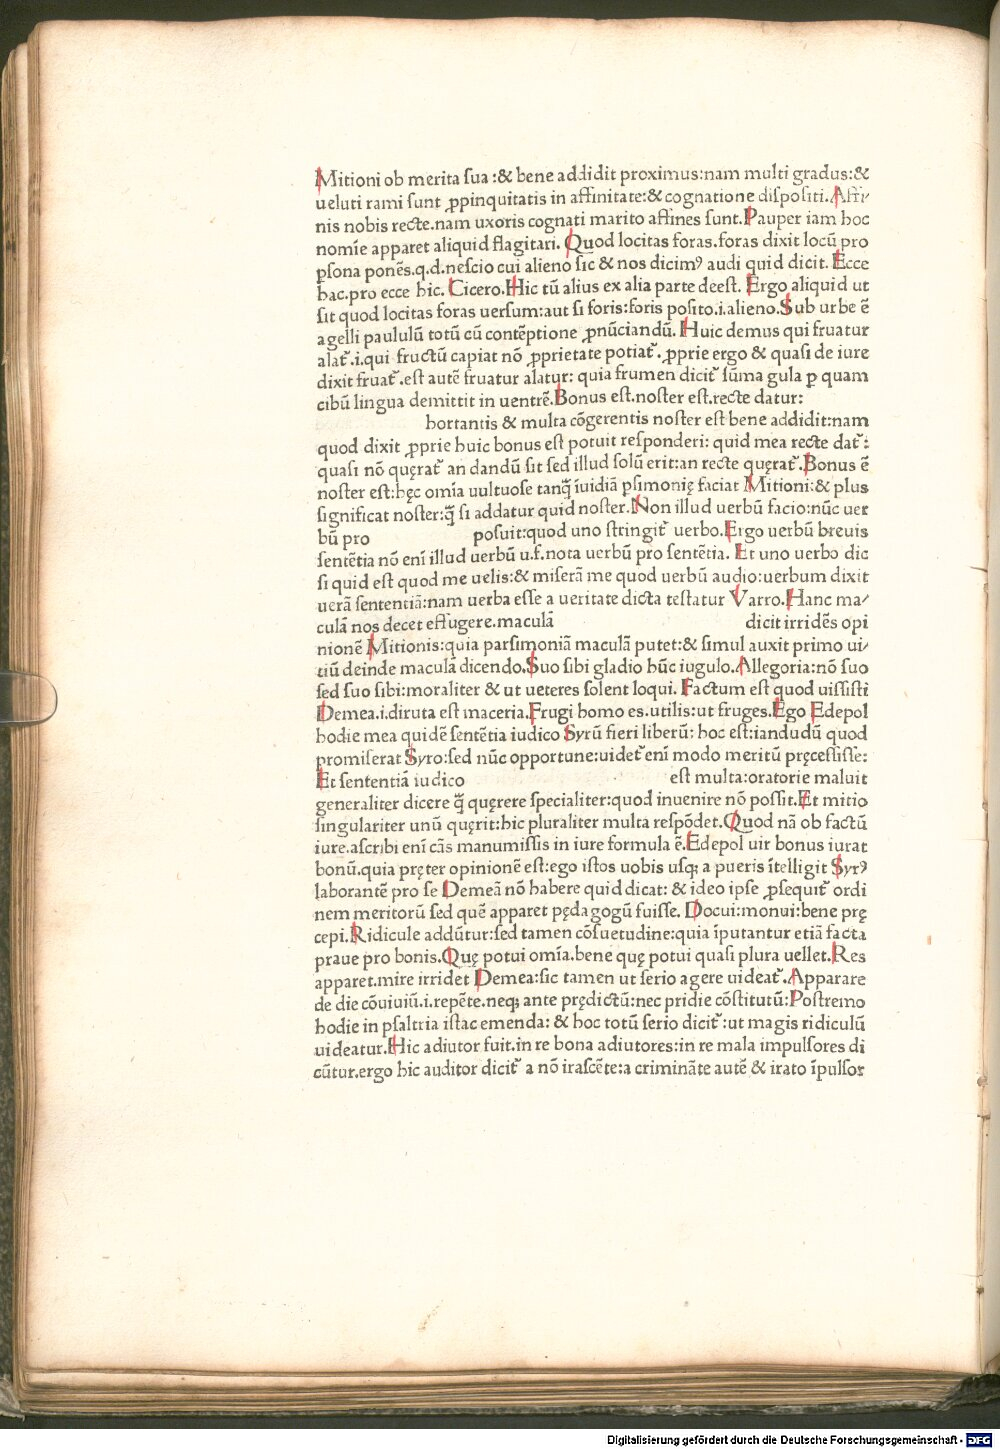 Mitioni ob merita sua :& bene addidit proximus:nam multi gradus:&
ueluti rami sunt ꝓpinquitatis in affinitate:& cognatione dispositi.Affi⸗
nis nobis recte.nam uxoris cognati marito affines sunt.Pauper iam hoc
nomĩe apparet aliquid flagitari. Quod locitas foras.foras dixit locũ pro
ꝑsona ponẽs.q.d.nescio cui alieno sic & nos dicimꝰ audi quid dicit. Ecce
hac.pro ecce hic. Cicero.Hic tũ alius ex alia parte deest. Ergo aliquid ut
sit quod locitas foras uersum:aut si foris:foris posito.i.alieno.Sub urbe ẽ
agelli paululũ totũ cũ contẽptione ꝓnũciandũ. Huic demus qui fruatur
alat᷑.i.qui fructũ capiat nõ ꝓprietate potiat᷑. ꝓprie ergo & quasi de iure
dixit fruat᷑.est autẽ fruatur alatur: quia frumen dicit᷑ sũma gula ꝑ quam
cibũ lingua demittit in uentrẽ.Bonus est.noster est.recte datur:
hortantis & multa cõgerentis noster est bene addidit:nam
quod dixit ꝓprie huic bonus est potuit responderi: quid mea recte dat᷑:
quasi nõ quęrat᷑ an dandũ sit sed illud solũ erit:an recte quęrat᷑.Bonus ẽ
noster est:hęc omĩa uultuose tanq̃ ĩuidiã ꝑsimonię faciat Mitioni:& plus
significat noster:q̃ si addatur quid noster.Non illud uerbũ facio:nũc uer
bũ pro posuit:quod uno stringit᷑ uerbo.Ergo uerbũ breuis
sentẽtia nõ enĩ illud uerbũ u.f.nota uerbũ pro sentẽtia. Et uno uerbo dic
si quid est quod me uelis:& miserã me quod uerbũ audio:uerbum dixit
uerã sententiã:nam uerba esse a ueritate dicta testatur Varro.Hanc ma⸗
culã nos decet effugere.maculã dicit irridẽs opi
nionẽ Mitionis:quia parsimoniã maculã putet:& simul auxit primo ui⸗
tiũ deinde maculã dicendo.Suo sibi gladio hũc iugulo.Allegoria:nõ suo
sed suo sibi:moraliter & ut ueteres solent loqui. Factum est quod uissisti
Demea.i.diruta est maceria.Frugi homo es.utilis:ut fruges.Ego Edepol
hodie mea quidẽ sentẽtia iudico Syrũ fieri liberũ: hoc est:iandudũ quod
promiserat Syro:sed nũc opportune:uidet᷑ enĩ modo meritũ pręcessisse:
Et sententiã iudico est multa:oratorie maluit
generaliter dicere q̃ quęrere specialiter:quod inuenire nõ possit.Et mitio
singulariter unũ quęrit:hic pluraliter multa respõdet.Quod nã ob factũ
iure.ascribi enĩ cãs manumissis in iure formula ẽ.Edepol uir bonus iurat
bonũ.quia pręter opinionẽ est:ego istos uobis usqꝫ a pueris ĩtelligit Syrꝰ
laborantẽ pro se Demeã nõ habere quid dicat: & ideo ipse ꝓsequit᷑ ordi
nem meritorũ sed quẽ apparet pędagogũ fuisse. Docui:monui:bene prę
cepi.Ridicule addũtur:sed tamen cõsuetudine:quia ĩputantur etiã facta
praue pro bonis.Quę potui omĩa.bene quę potui quasi plura uellet.Res
apparet.mire irridet Demea:sic tamen ut serio agere uideat᷑.Apparare
de die cõuiuiũ.i.repẽte.neqꝫ ante prędictũ:nec pridie cõstitutũ:Postremo
hodie in psaltria istac emenda: & hoc totũ serio dicit᷑:ut magis ridiculũ
uideatur.Hic adiutor fuit.in re bona adiutores:in re mala impulsores di
cũtur.ergo hic auditor dicit᷑ a nõ irascẽte:a criminãte autẽ & irato ĩpulsor
Digitalisierung gefördert durch die Deutsche Forschungsgemeinschaft - DFG